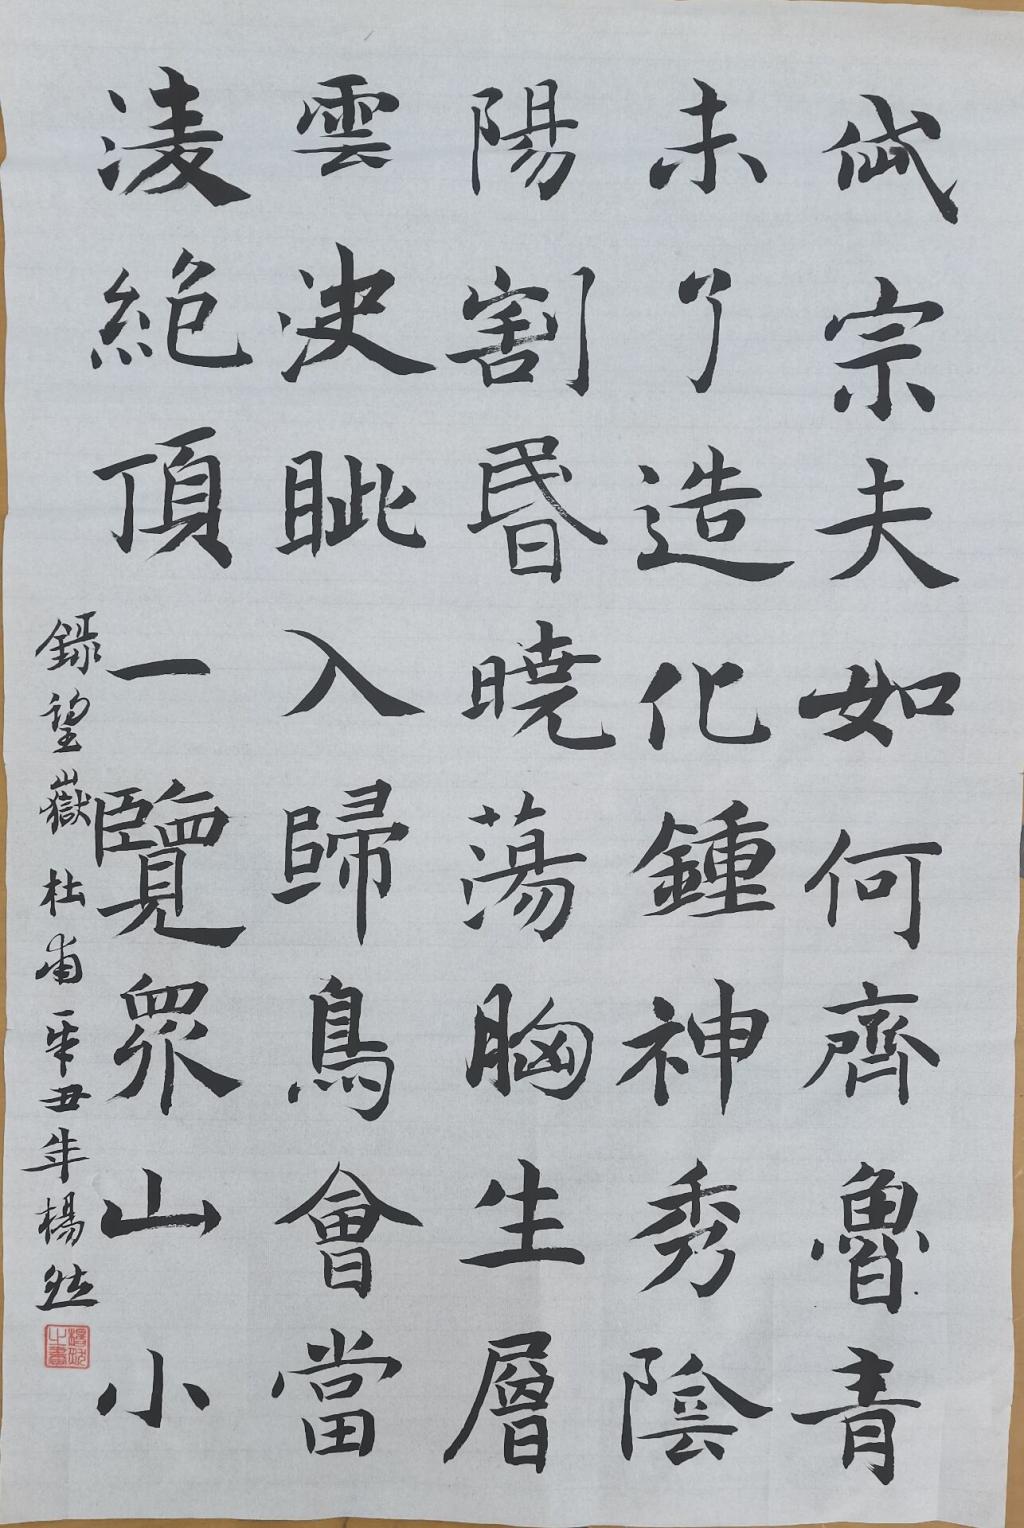 岱宗夫如何齊魯青
未了造化鍾神秀陰
陽割昏曉蕩胸生層
雲決眦入歸鳥會當
凌絕頂一覽眾山小
錄望嶽杜甫辛丑年楊